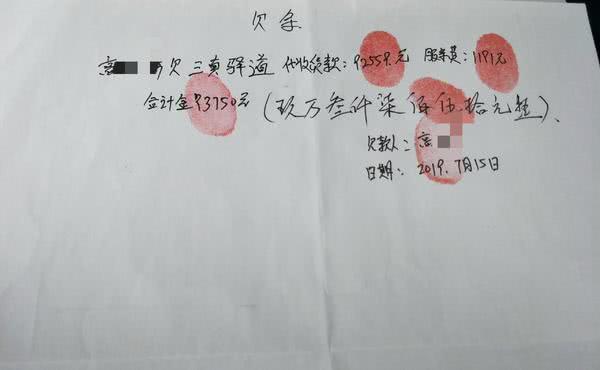 欠条
高 欠三真驿道 代收货款:92559元 服务费:1191元
合计金93750元 (玖万叁仟柒佰伍拾元整)、
欠款人:高
日期:2019.7月15日